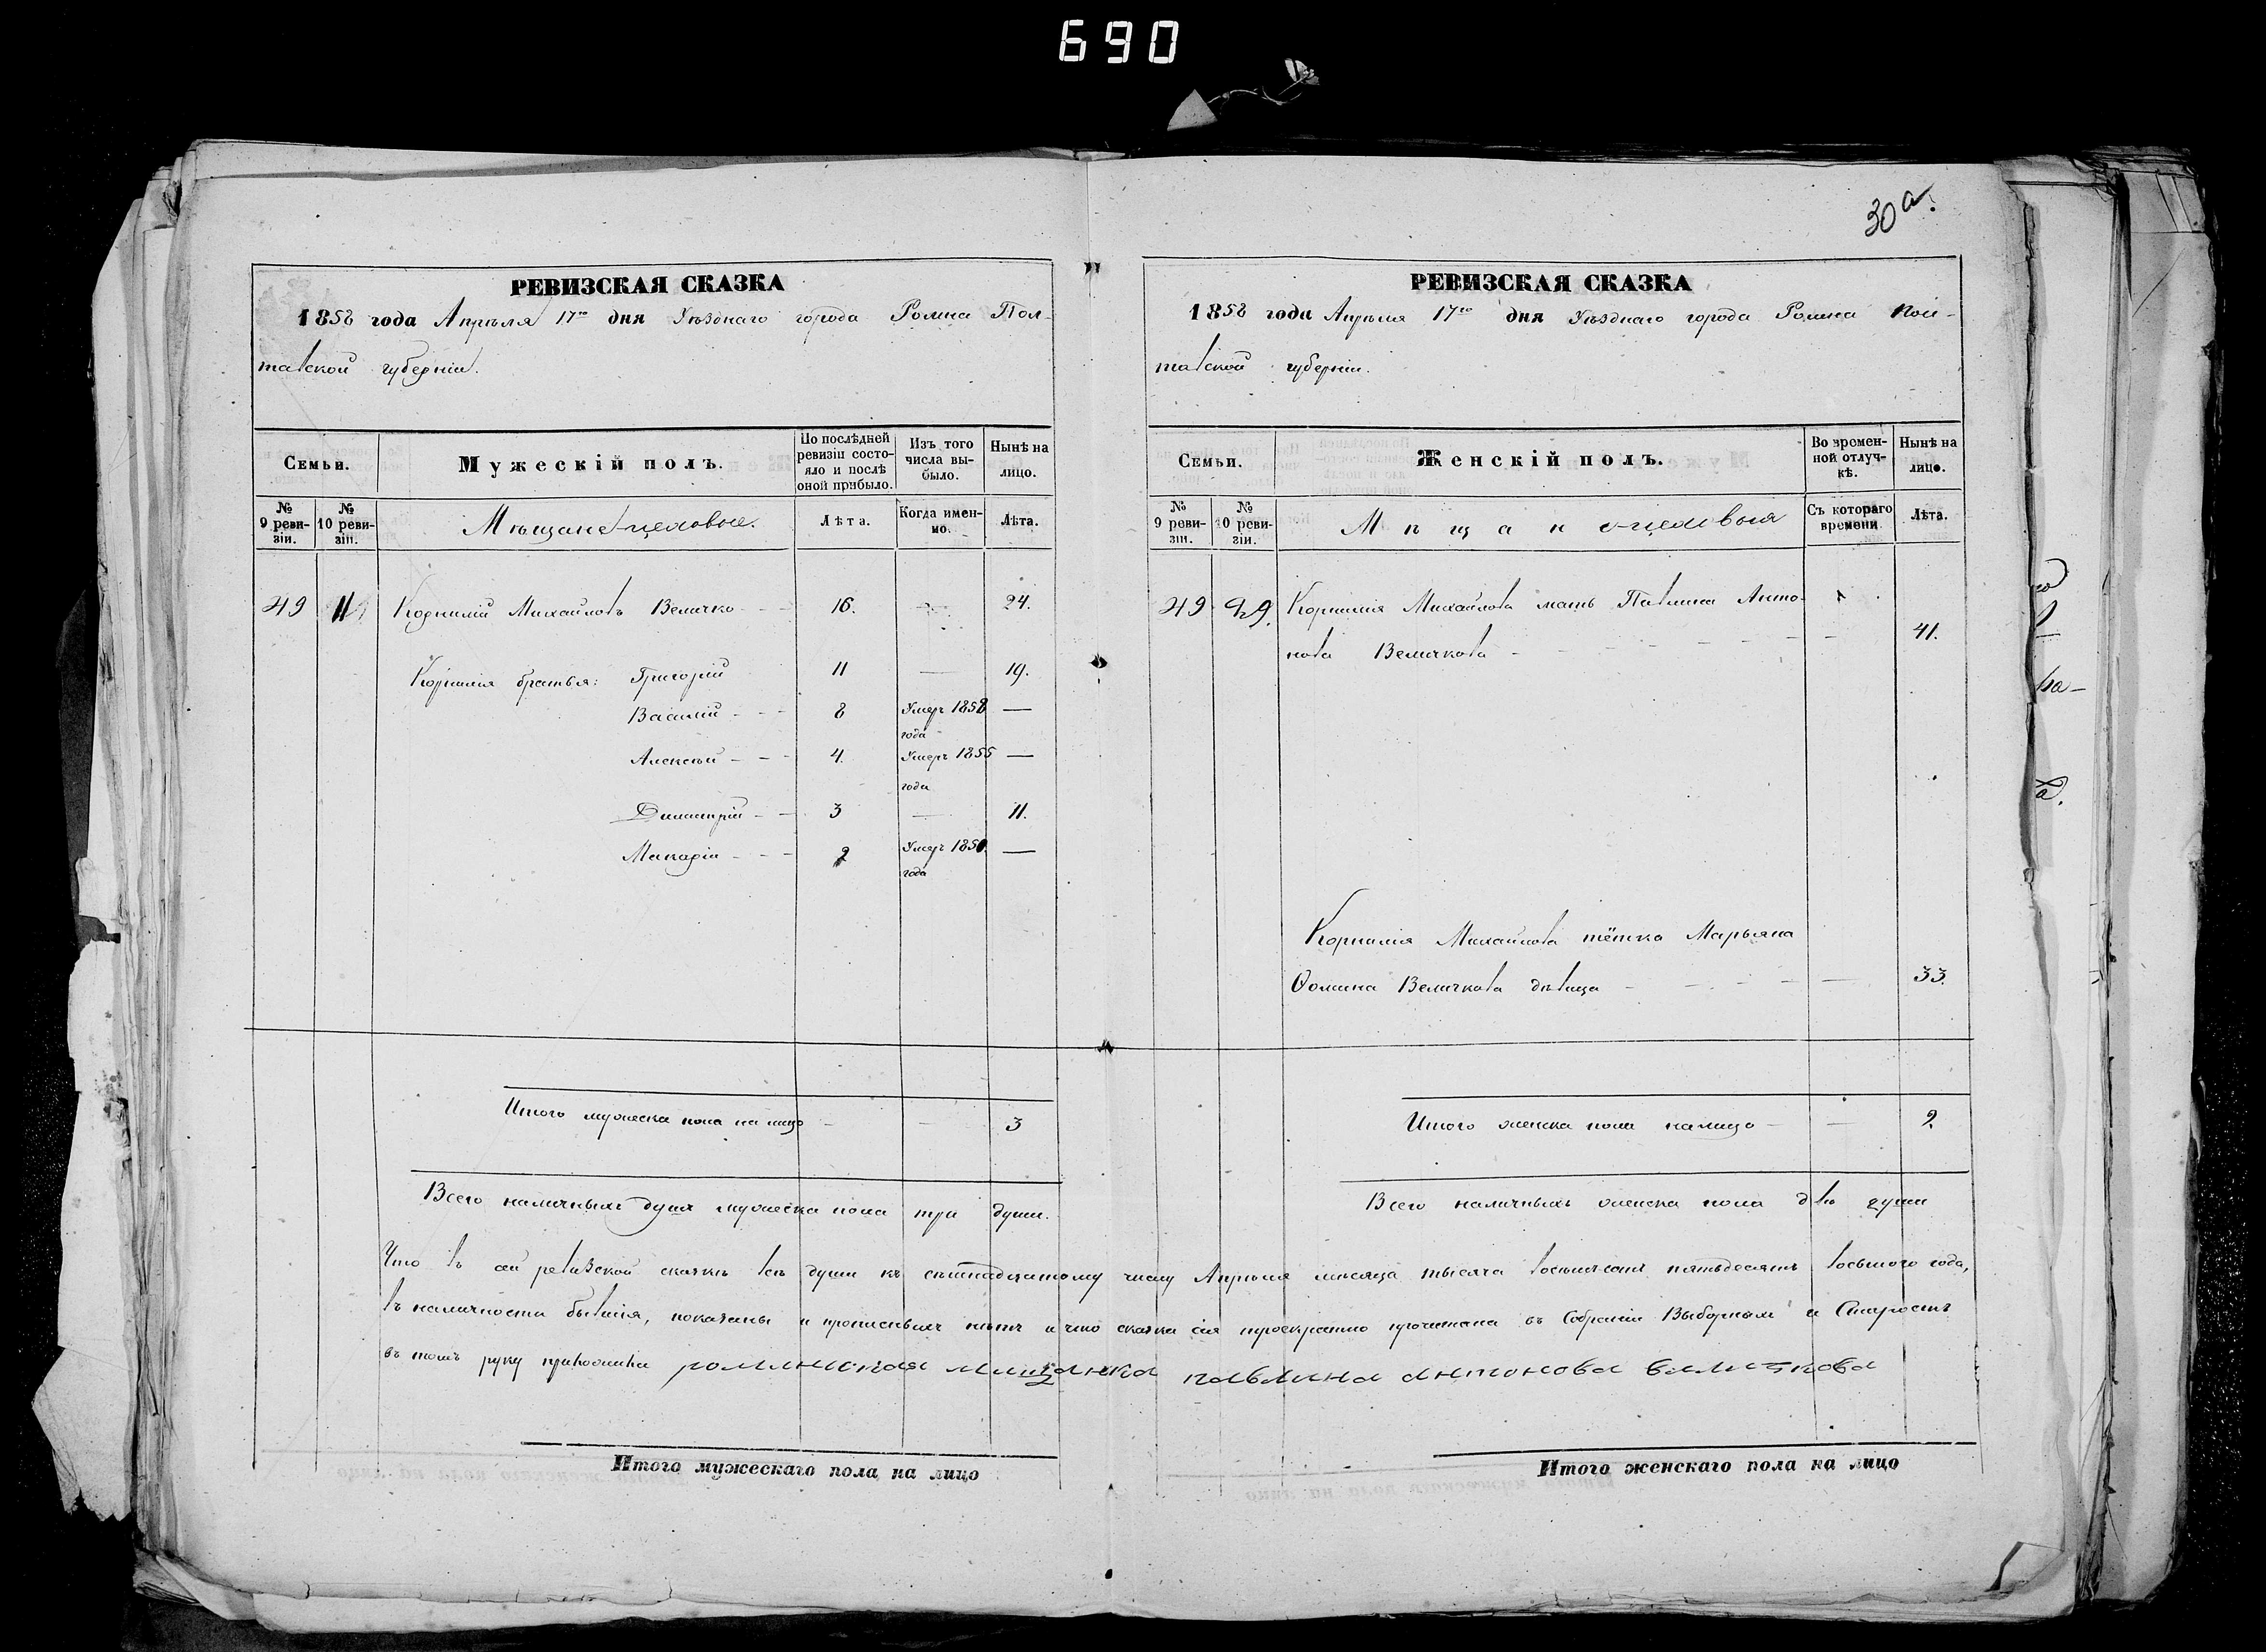 690
30а.
РЕВИЗСКАЯ СКАЗКА
1858 года Апрѣля 17го дня Уѣзднаго города Ромна Пол-
тавской губерніи.
Семьи.
Мужескій полъ.
По послѣдней ревизіи состояло и послѣ оной прибыло.
Изъ того числа выбыло.
Нынѣ на лицо.
№ 9 ревизіи.
№ 10 ревизіи.
Мѣщане-цеховые.
Лѣта.
Когда именно.
Лѣта.
49 Корнилій Михайловъ Величко 16. — 24.
Корнилія братья: Григорій 11 — 19.
Василій 8 Умеръ 1858 года —
Алексѣй 4. Умеръ 1855 года —
Димитрій 3 — 11.
Макарій 2 Умеръ 1850. года —
Итого мужеска пола на лицо — — 3
Всего наличныхъ душъ мужеска пола три души.
РЕВИЗСКАЯ СКАЗКА
1858 года Апрѣля 17го дня Уѣзднаго города Ромна Пол-
тавской губерніи.
Семьи.
Женскій полъ.
Во временной отлучкѣ.
Нынѣ на лицо.
№ 9 ревизіи.
№ 10 ревизіи.
Мѣщане-цеховыя
Съ котораго времени
Лѣта.
49 Корнилія Михайлова мать Павлина Анто-
нова Величкова — 41.
Корнилія Михайлова тётка Марьяна
Ѳомина Величкова дѣвица — 33.
Итого женска пола на лицо — — 2.
Всего наличныхъ женска пола двѣ души
Что въ сей ревизской сказкѣ всѣ души къ семнадцатому числу Апрѣля мѣсяца тысяча восемьсотъ пятьдесятъ восьмого года,
въ наличности бывшія, показаны и прописныхъ нѣтъ и что сказка сія троекратно прочитана въ Собраніи Выборныхъ и Старостъ
въ томъ руку приложила роменская мещанка павлина антонова величкова
Итого мужескаго пола на лицо
Итого женскаго пола на лицо